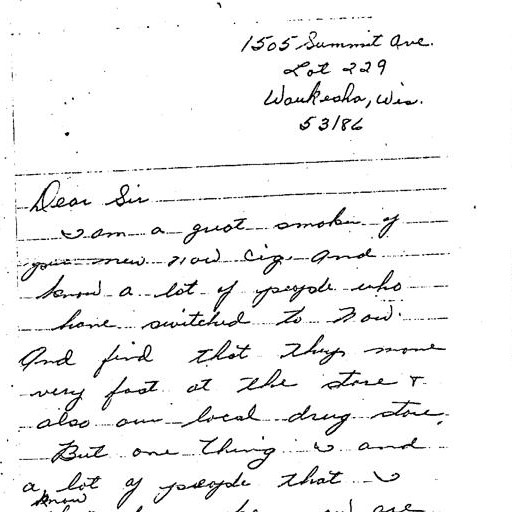 1505 Summit Ave.
Lot 229
Waukesha, Wis.
53186
Dear Sir
I am a great smoker of
your new now cig. and
know a lot of people who
have switched to Now.
And find that they move
very fast at the store &
also our local drug store.
But one thing I and
a lot of people that I
know
are